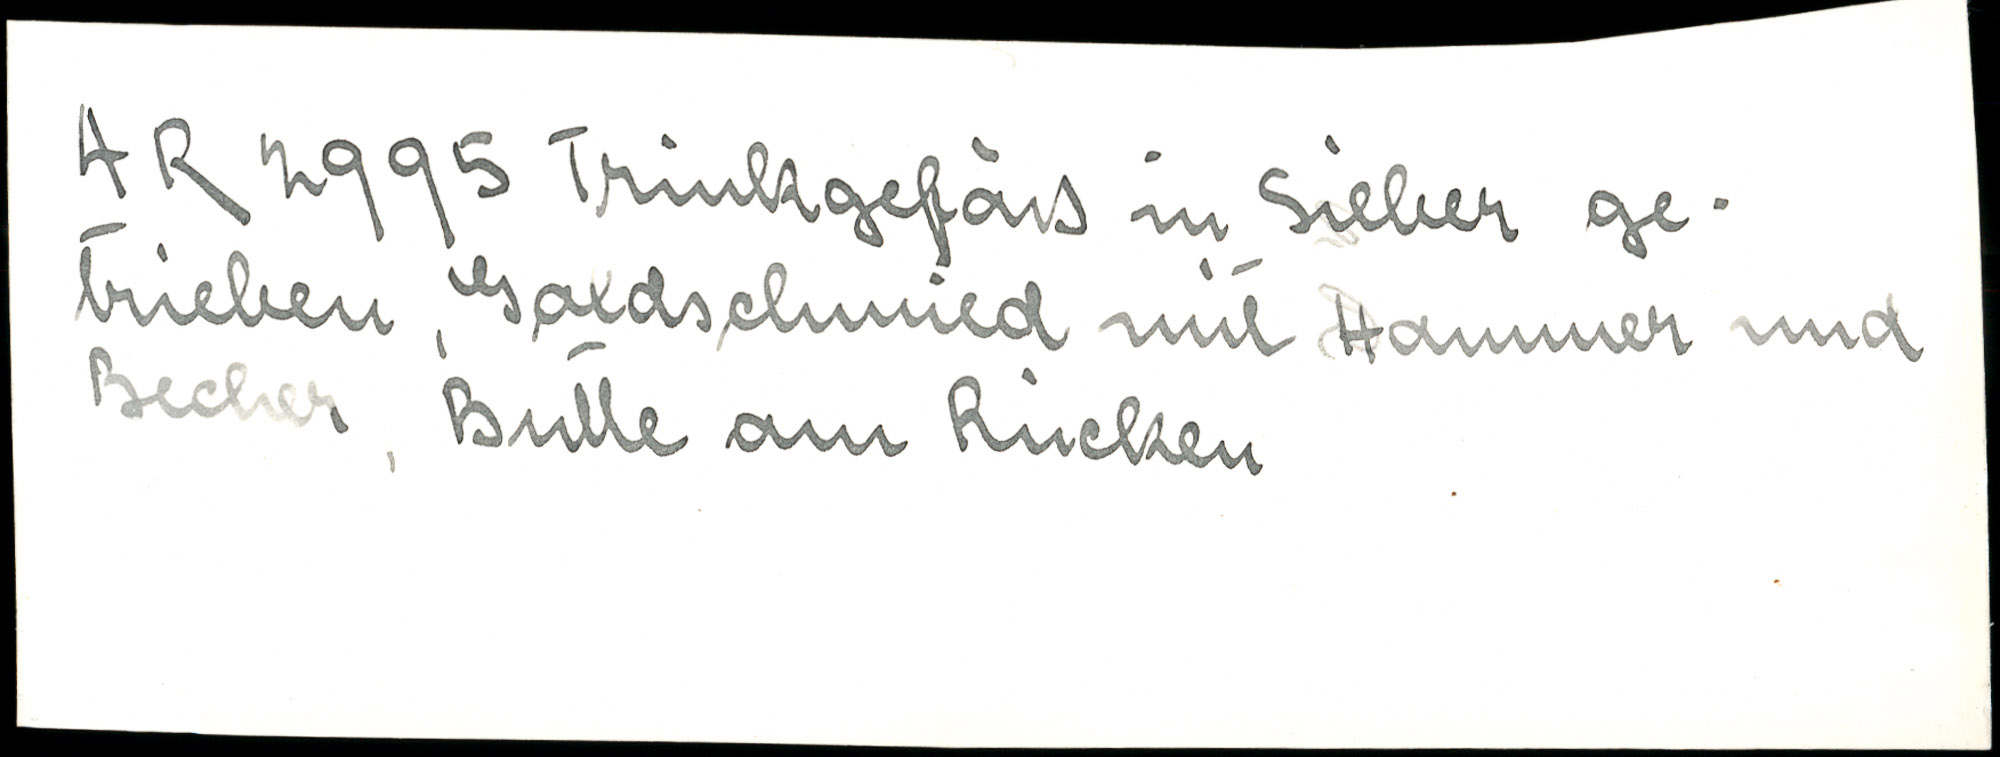 AR 2995 Trinkgefäss in Silber ge-
trieben, Goldschmied mit Hammer und
Becher, Butte am Rücken